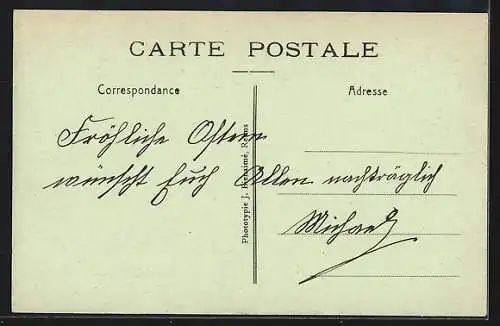 CARTE POSTALE
Correspondance
Adresse
Fröhliche Ostern
wünscht Euch Allen nachträglich
Michael
Phototypie J. Bienaimé, Reims